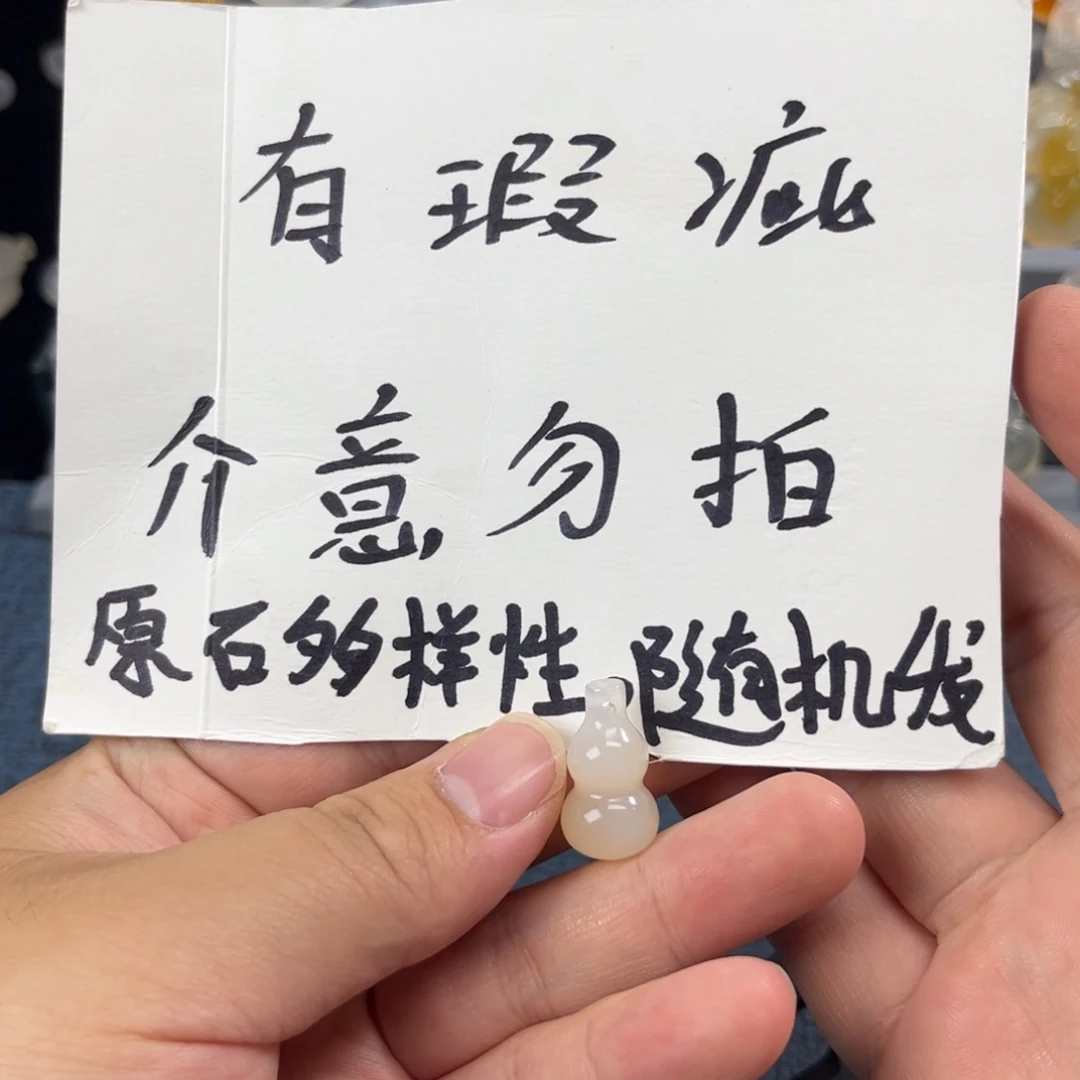 有瑕疵
介意勿拍
原石多样性 随机发